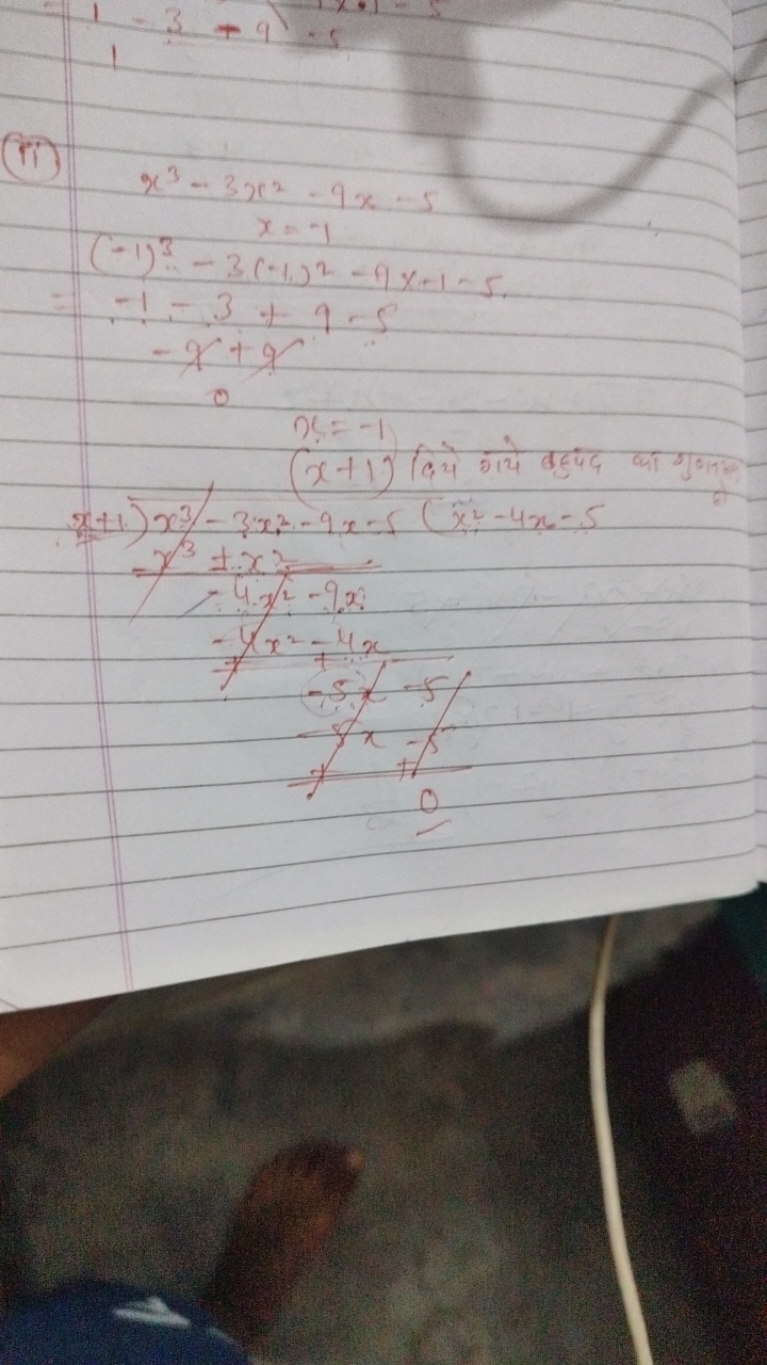 1 - 3 + 9 - 5
1
(ii)
x³ - 3x² - 9x - 5
x = -1
(-1)³ - 3(-1)² - 9x-1 - 5
= -1 - 3 + 9 - 5
-9 + 9
0
x = -1
(x+1) दिये गये बहुपद का
x+1) x³ - 3x² - 9x - 5 (x² - 4x - 5
-x³ ± x²
-4x² - 9x
-4x² - 4x
+ +
-5x -5
-5x -5
+ +
0